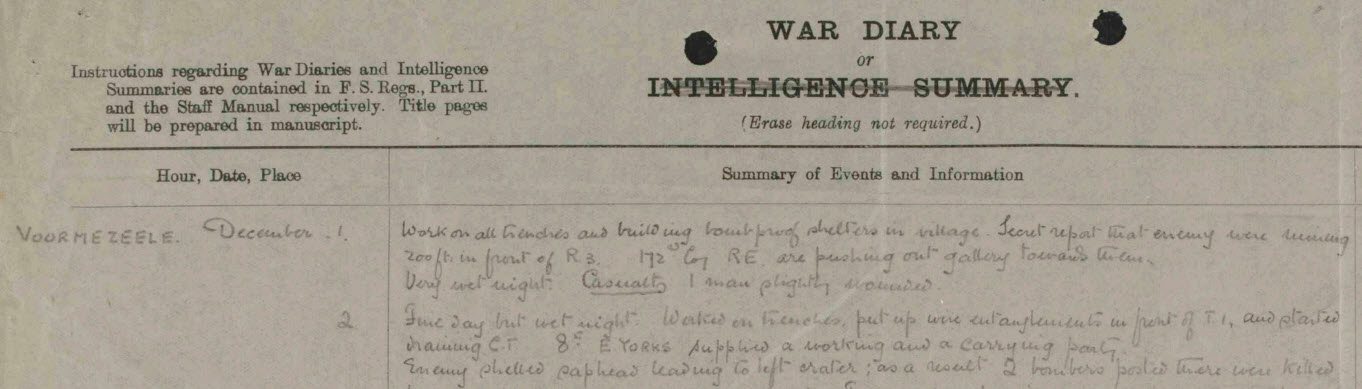 WAR DIARY
or
INTELLIGENCE SUMMARY.
(Erase heading not required.)
Instructions regarding War Diaries and Intelligence
Summaries are contained in F. S. Regs., Part II.
and the Staff Manual respectively. Title pages
will be prepared in manuscript.
Hour, Date, Place
Summary of Events and Information
VOORMEZEELE. December 1.
Work on all trenches and building bombproof shelters in village. Secret report that enemy were mining
200 ft. in front of R 3. 172nd Coy RE. are pushing out gallery towards them.
Very wet night. Casualty 1 man slightly wounded.
2
Fine day but wet night. Worked on trenches, put up wire entanglements in front of T.1, and started
draining C.T 8th E. YORKS supplied a working and a carrying party.
Enemy shelled saphead leading to left crater; as a result 2 bombers posted there were killed